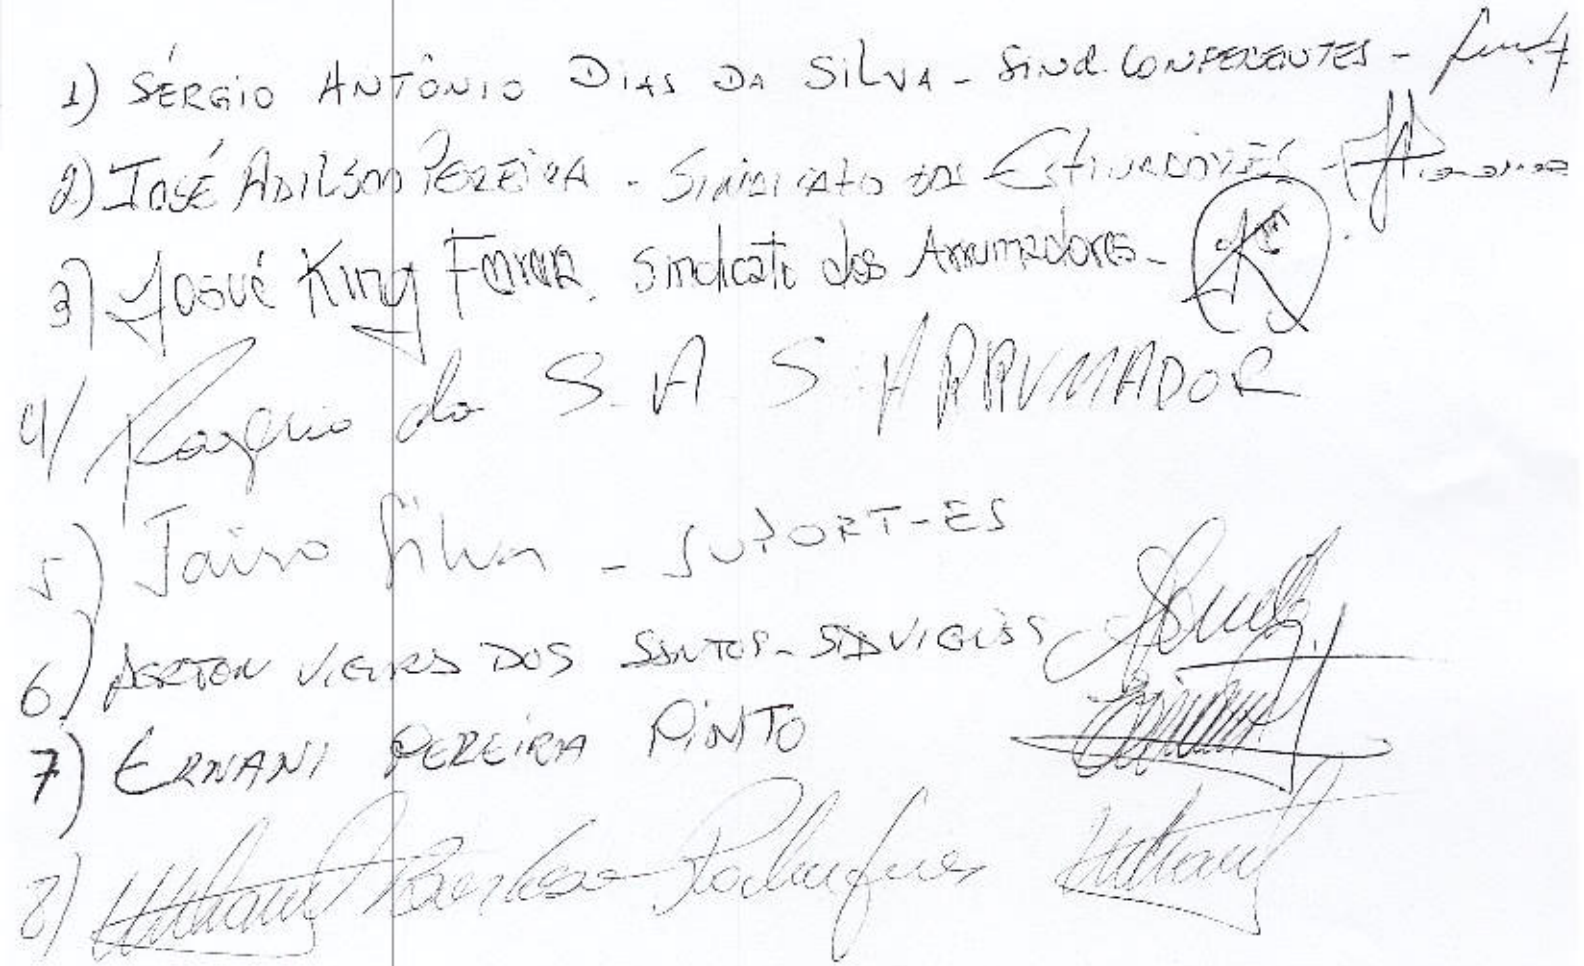 1) SÉRGIO ANTÔNIO DIAS DA SILVA - SIND. CONFERENTES -
2) JOSÉ ADILSON PEREIRA - SINDICATO DOS ESTIVADORES -
3) JOSUÉ King Ferreira. Sindicato dos Arrumadores -
4) Rogério da S. A. S. ARRUMADOR
5) Jairo Silva - SUPORT-ES
6) VIEIRA DOS SANTOS -
7) ERNANI PEREIRA PINTO
8) Barbosa Rodrigues